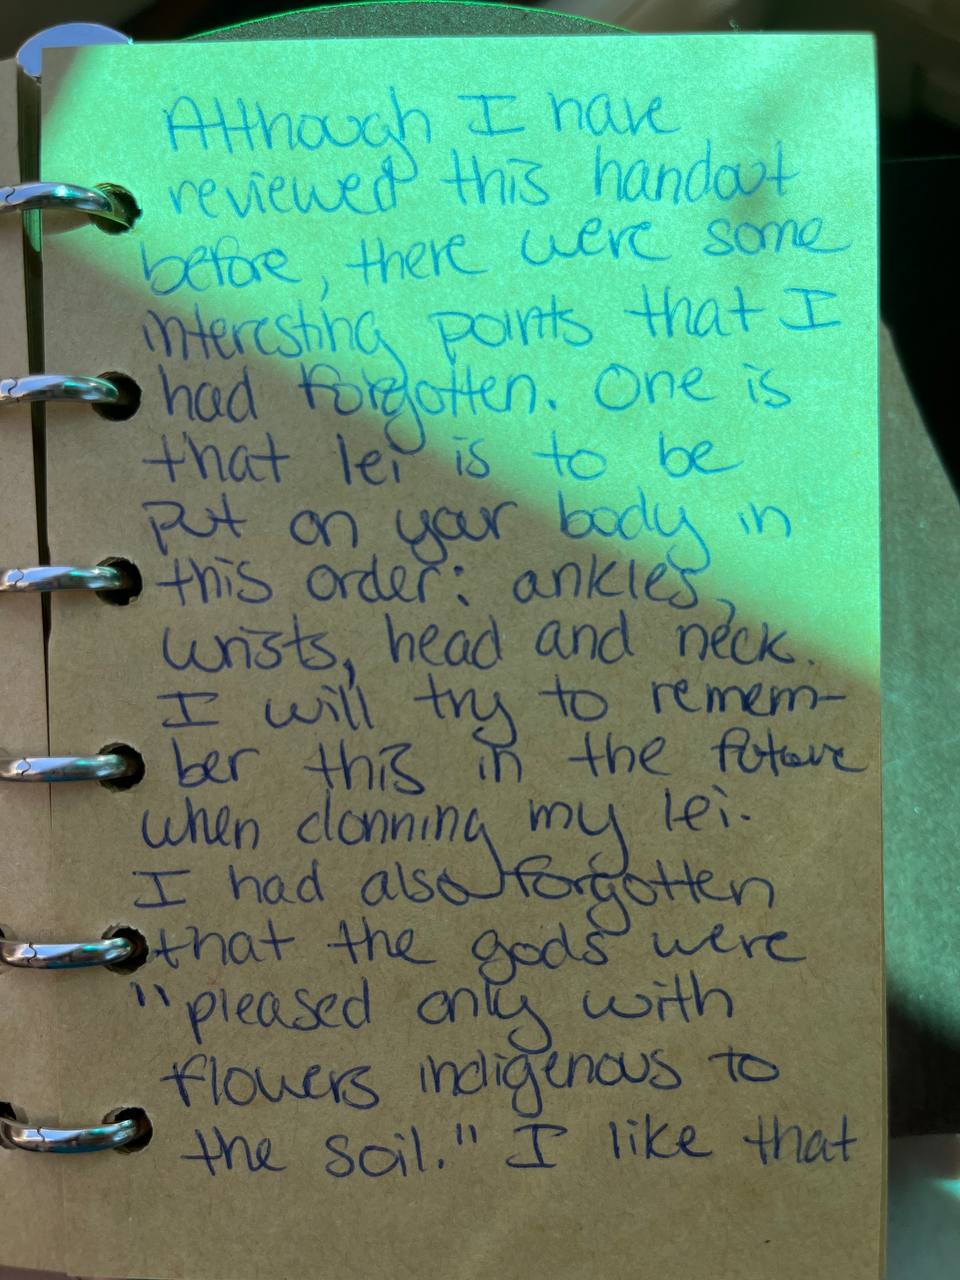 Although I have
reviewed this handout
before, there were some
interesting points that I
had forgotten. One is
that lei is to be
put on your body in
this order: ankles,
wrists, head and neck.
I will try to remem-
ber this in the future
when donning my lei.
I had also forgotten
that the gods were
"pleased only with
flowers indigenous to
the soil." I like that